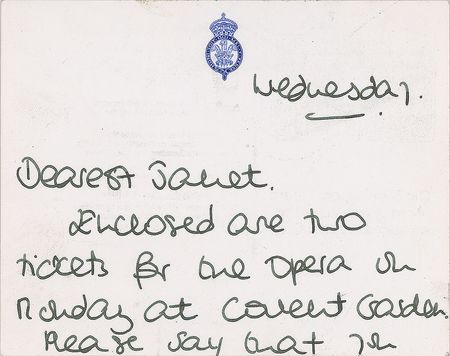 Wednesday.
Dearest Janet.
Enclosed are two
tickets for the Opera on
Monday at Covent Garden.
Please say that in